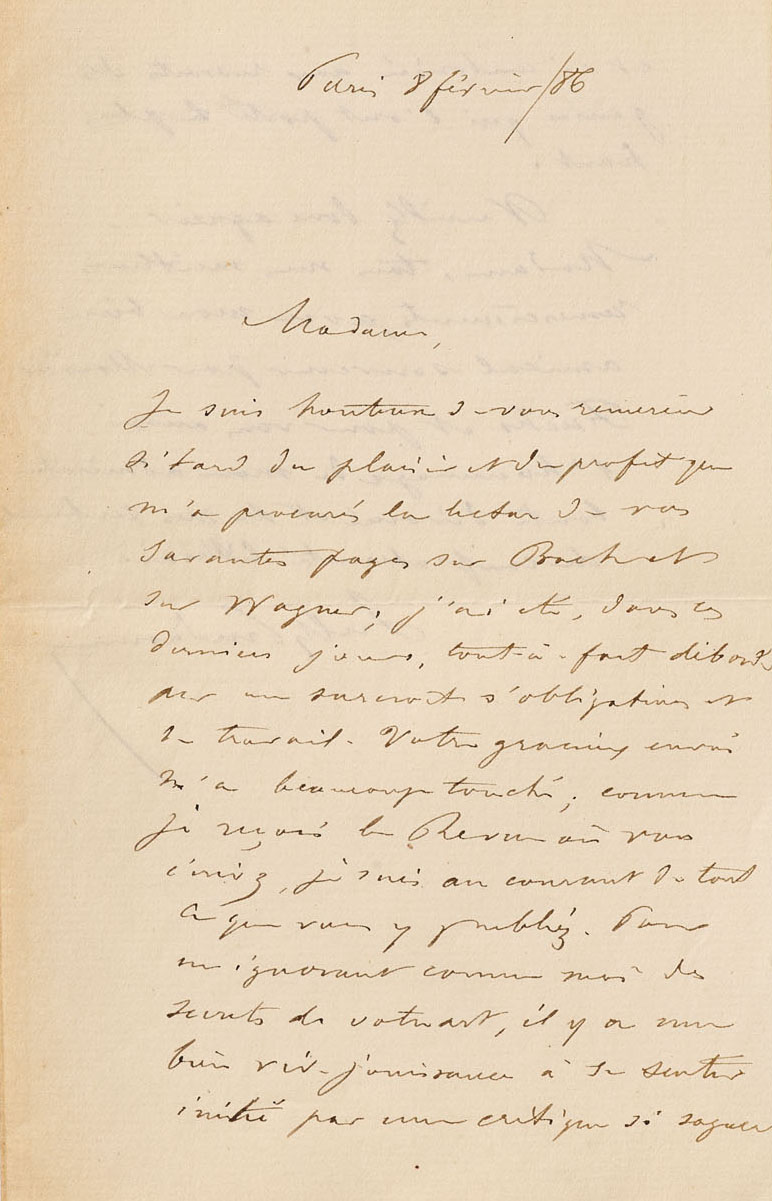 Paris 8 février/86
Madame,
Je suis honteux de vous remercier
si tard du plaisir et du profit que
m'a procurés la lecture de vos
savantes pages sur Bach et
sur Wagner; j'ai été, dans ces
derniers jours, tout-à-fait débordé
par un surcroît d'obligations et
de travail. Votre gracieux envoi
m'a beaucoup touché; comme
je reçois la Revue où vous
écrivez, je suis au courant de tout
ce que vous y publiez. Pour
un ignorant comme moi des
secrets de votre art, il y a une
bien vive jouissance à se sentir
initié par une critique si sagace